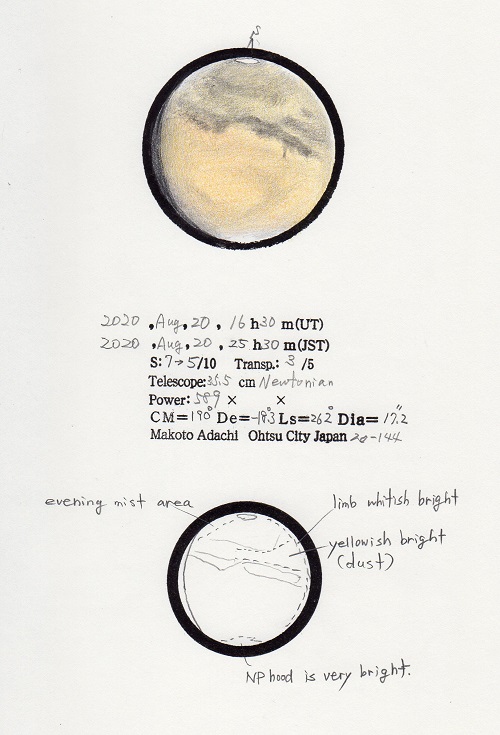 S
2020 , Aug, 20 , 16 h 30 m(UT)
2020 , Aug, 20 , 25 h 30 m(JST)
S: 7→5/10 Transp.: 3 /5
Telescope: 35.5 cm Newtonian
Power: 589 × ×
CM=190° De=-19.3 Ls=262° Dia= 17.2"
Makoto Adachi Ohtsu City Japan 20-144
evening mist area
limb whitish bright
yellowish bright
(dust)
NP hood is very bright.